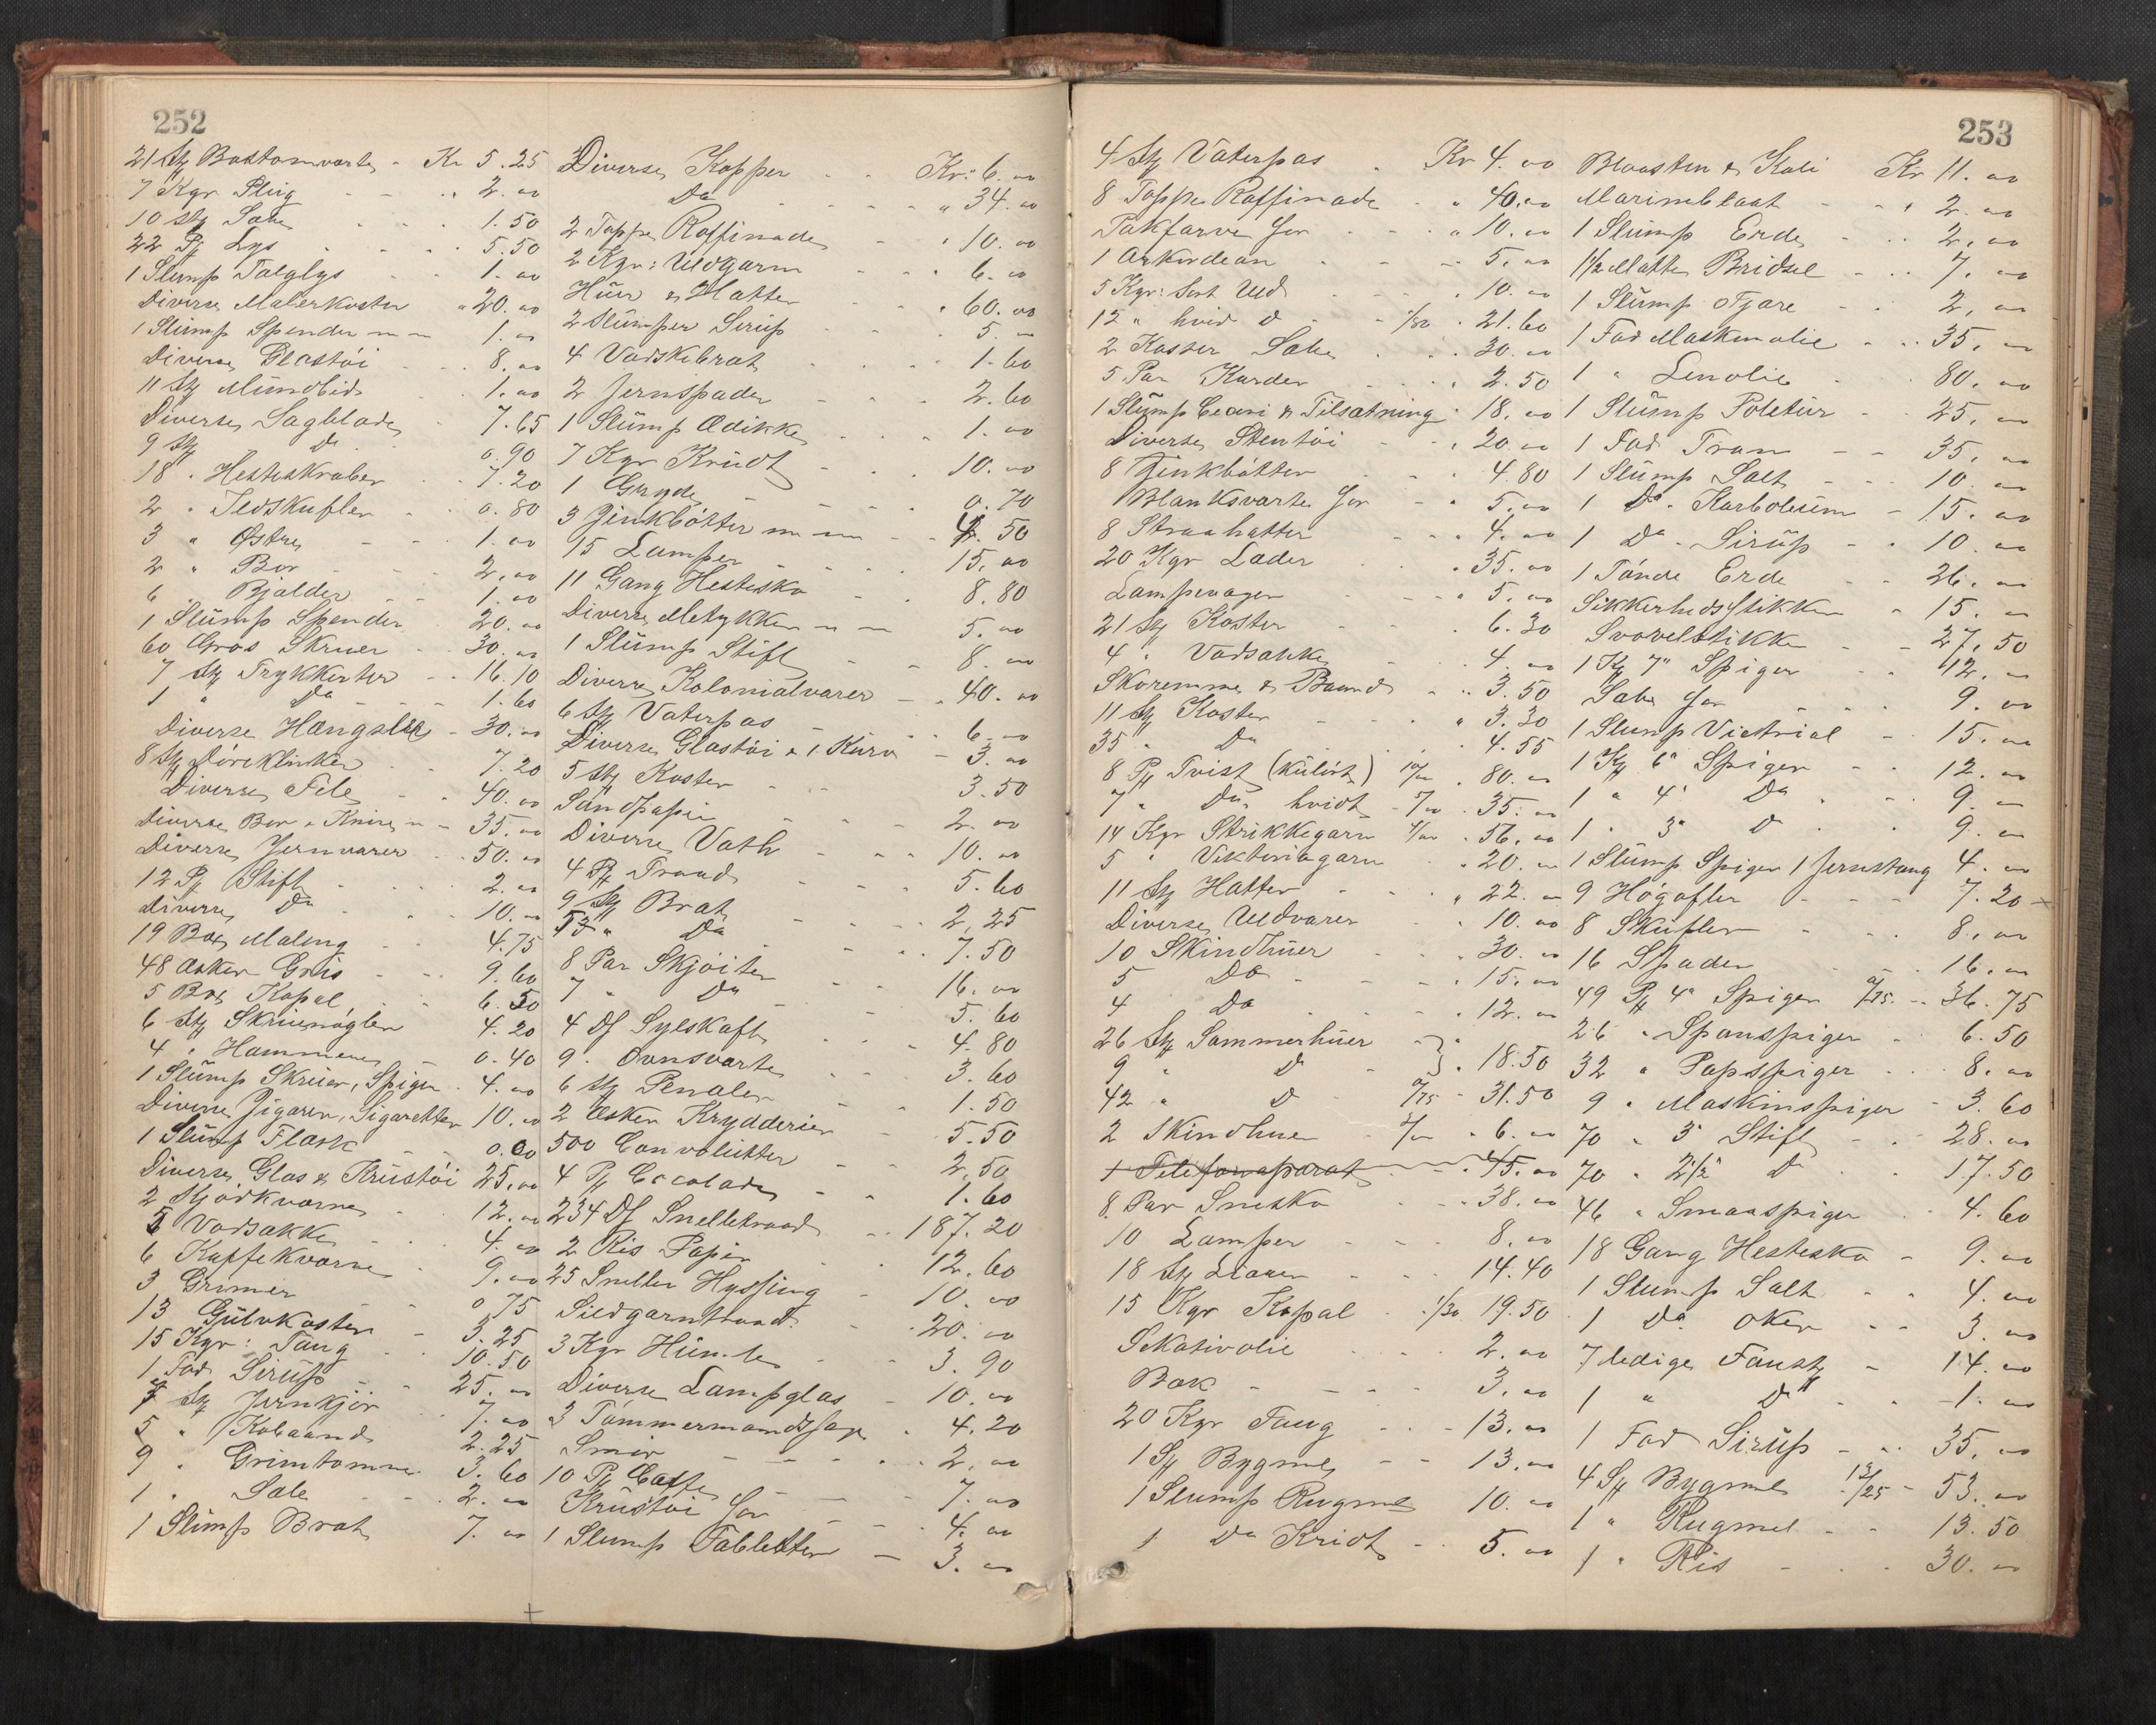 252
21 Stk Bostonsvarte - Kr 5.25
7 Kgr Pluig - - " 2.00
10 Stk Sæbe 1.50
22 Pk Lys 5.50
1 Slump Talglys 1.00
Diverse Malerkoster " 20.00
1 Slump Spender m m 1.00
Diverse Glastöi 8.00
11 Stk Mundbid 1.00
Diverse Sagblade 7.65
9 Stk Do 0.90
18 " Hesteskraber 7.20
2 " Ildskufler 0.80
3 " Østre 1.00
2 " Bor 2.00
6 " Bjælder 1.00
1 Slump Spender 20.00
60 Gros Skruer 30.00
7 Stk Trykkerter 16.10
1 " Do 1.60
Diverse Hængslee 30.00
8 Stk Dörklinker 7.20
Diverse File 40.00
Diverse Bor & Knive m m 35.00
Diverse Jernvarer 50.00
12 Pk Stift 2.00
Diverse Do 10.00
19 Box Maling 4.75
48 Æsker Gris 9.60
5 Box Kopal 6.50
6 Stk Skruenögler 4.20
4 " Hammere 0.40
1 Slump Skruer, Spiger 4.00
Diverse Zigarer, Sigaretter 10.00
1 Slump Flæsk 0.00
Diverse Glas & Krustöi 25.00
2 Kjödkværne 12.00
5 Vadsække 4.00
6 Kaffekværne 9.00
3 Grimer 0.75
13 Gulvkoster 3.25
15 Kgr: Taug 10.50
1 Fad Sirup 25.00
7 Stk Jernkjör 7.00
5 " Kobaand 2.25
9 " Grimtømme 3.60
1 " Sale 2.00
1 Slump Bræt 7.00
Diverse Kopper Kr: 6.00
Do " 34.00
2 Toppe Raffinade " 10.00
2 Kgr: Uldgarn 6.00
Huer & Hatter " 60.00
2 Slumper Sirup 5.00
4 Vadskebræt 1.60
2 Jernspader 2.60
1 Slump Ædikke 1.00
7 Kgr Krudt 10.00
1 Gryde 0.70
3 Zinkbøtter m m 4.50
15 Lamper 15.00
11 Gang Hestesko 8.80
Diverse Metykker m m 5.00
1 Slump Stift 8.00
Diverse Kolonialvarer 40.00
6 Stk Vaterpas 6.00
Diverse Glastöi & 1 Kurv 3.00
5 Stk Koster 3.50
Sandpapir 2.00
Diverse Vath 10.00
4 Pk Traad 5.60
9 Stk Bræt 2.25
53 " Do 7.50
8 Par Skjöiter 16.00
7 " Do 5.60
4 Ds Sylskaft 4.80
9 " Ovnsværte 3.60
6 Stk Penaler 1.50
2 Æsker Krydderier 5.50
500 Convolutter 2.50
4 Pk Cocolade 1.60
234 Ds Snelletraad 187.20
2 Ris Papir 12.60
25 Sneller Hyssing 10.00
Sildgarntraad 20.00
3 Kgr Humle 3.90
Diverse Lampglas 10.00
3 Tømmermandssage 4.20
Smör 2.00
10 Pk Caffe 7.00
Krustöi for 4.00
1 Slump Tabletter 3.00
253
4 Stk Vaterpas Kr 4.00
8 Toppe Raffinade " 40.00
Pakfarve for " 10.00
1 Arkordeon 5.00
5 Kgr: Sort Uld " 10.00
12 " hvid D 1/80 " 21.60
2 Kasser Sæbe 30.00
5 Par Karder " 2.50
1 Slump Ceari & Tilsætning 18.00
Diverse Stentöi 20.00
8 Zinkbötter 4.80
Blanksværte for 5.00
8 Straahatter 4.00
20 Kgr Læder 35.00
Lampevæger 5.00
21 Stk Koster 6.30
4 " Vadsække 4.00
Skoremme & Baand 3.50
11 Stk Koster " 3.30
35 " Do 4.55
8 Pk Tvist (Kulört) 10/00 80.00
7 " Do hvidt 5/00 35.00
14 Kgr Strikkegarn 4/00 56.00
5 " Viktoriagarn 20.00
11 Stk Hatter " 22.00
Diverse Uldvarer 10.00
10 Skindhuer 30.00
5 Do 15.00
4 Do 12.00
26 Stk Sommerhuer
9 " D } 18.50
42 " D 0/75 31.50
2 Skindhuer 3/00 6.00
1 Telefonaparat 45.00
8 Par Snesko 38.00
10 Lamper 8.00
18 Stk Liaaer 14.40
15 Kgr Kopal 1/30 19.50
Sekativolie 2.00
Bæk 3.00
20 Kgr Taug 13.00
1 Sk Bygmel 13.00
1 Slump Rugmel 10.00
1 Do Kridt 5.00
Blaasten & Kali Kr 11.00
Marineblaat 2.00
1 Slump Erde 2.00
1 1/2 Mätte Bridsel 7.00
1 Slump Tjære 2.00
1 Fad Maskinolie 35.00
1 " Linolie 80.00
1 Slump Politur 25.00
1 Fad Tran 35.00
1 Slump Salt 10.00
1 Do Karboleum 15.00
1 Do Sirup 10.00
1 Tønde Erde 26.00
Sikkerhedsstikker 15.00
Svovelstikke 27.50
1 Kg 7" Spiger 12.00
Sæbe for 9.00
1 Slump Victrial 15.00
1 Kg 6" Spiger 12.00
1 " 4" Do 9.00
1 " 3" D 9.00
1 Slump Spiger 1 Jernstang 4.00
9 Høgafler 7.20
8 Skufler 8.00
16 Spader 16.00
49 Pk 4" Spiger 0/75 36.75
26 " Spanspiger 6.50
32 " Papspiger 8.00
9 " Maskinspiger 3.60
70 " 3" Stift 28.00
70 " 2 1/2" D 17.50
46 " Smaaspiger 4.60
18 Gang Hestesko 9.00
1 Slump Salt 4.00
1 Do Oker 3.00
7 ledige Faustk 14.00
1 " Do 1.00
1 Fad Sirup 35.00
4 Sk Bygmel 13/25 53.00
1 " Rugmel 13.50
1 " Ris 30.00